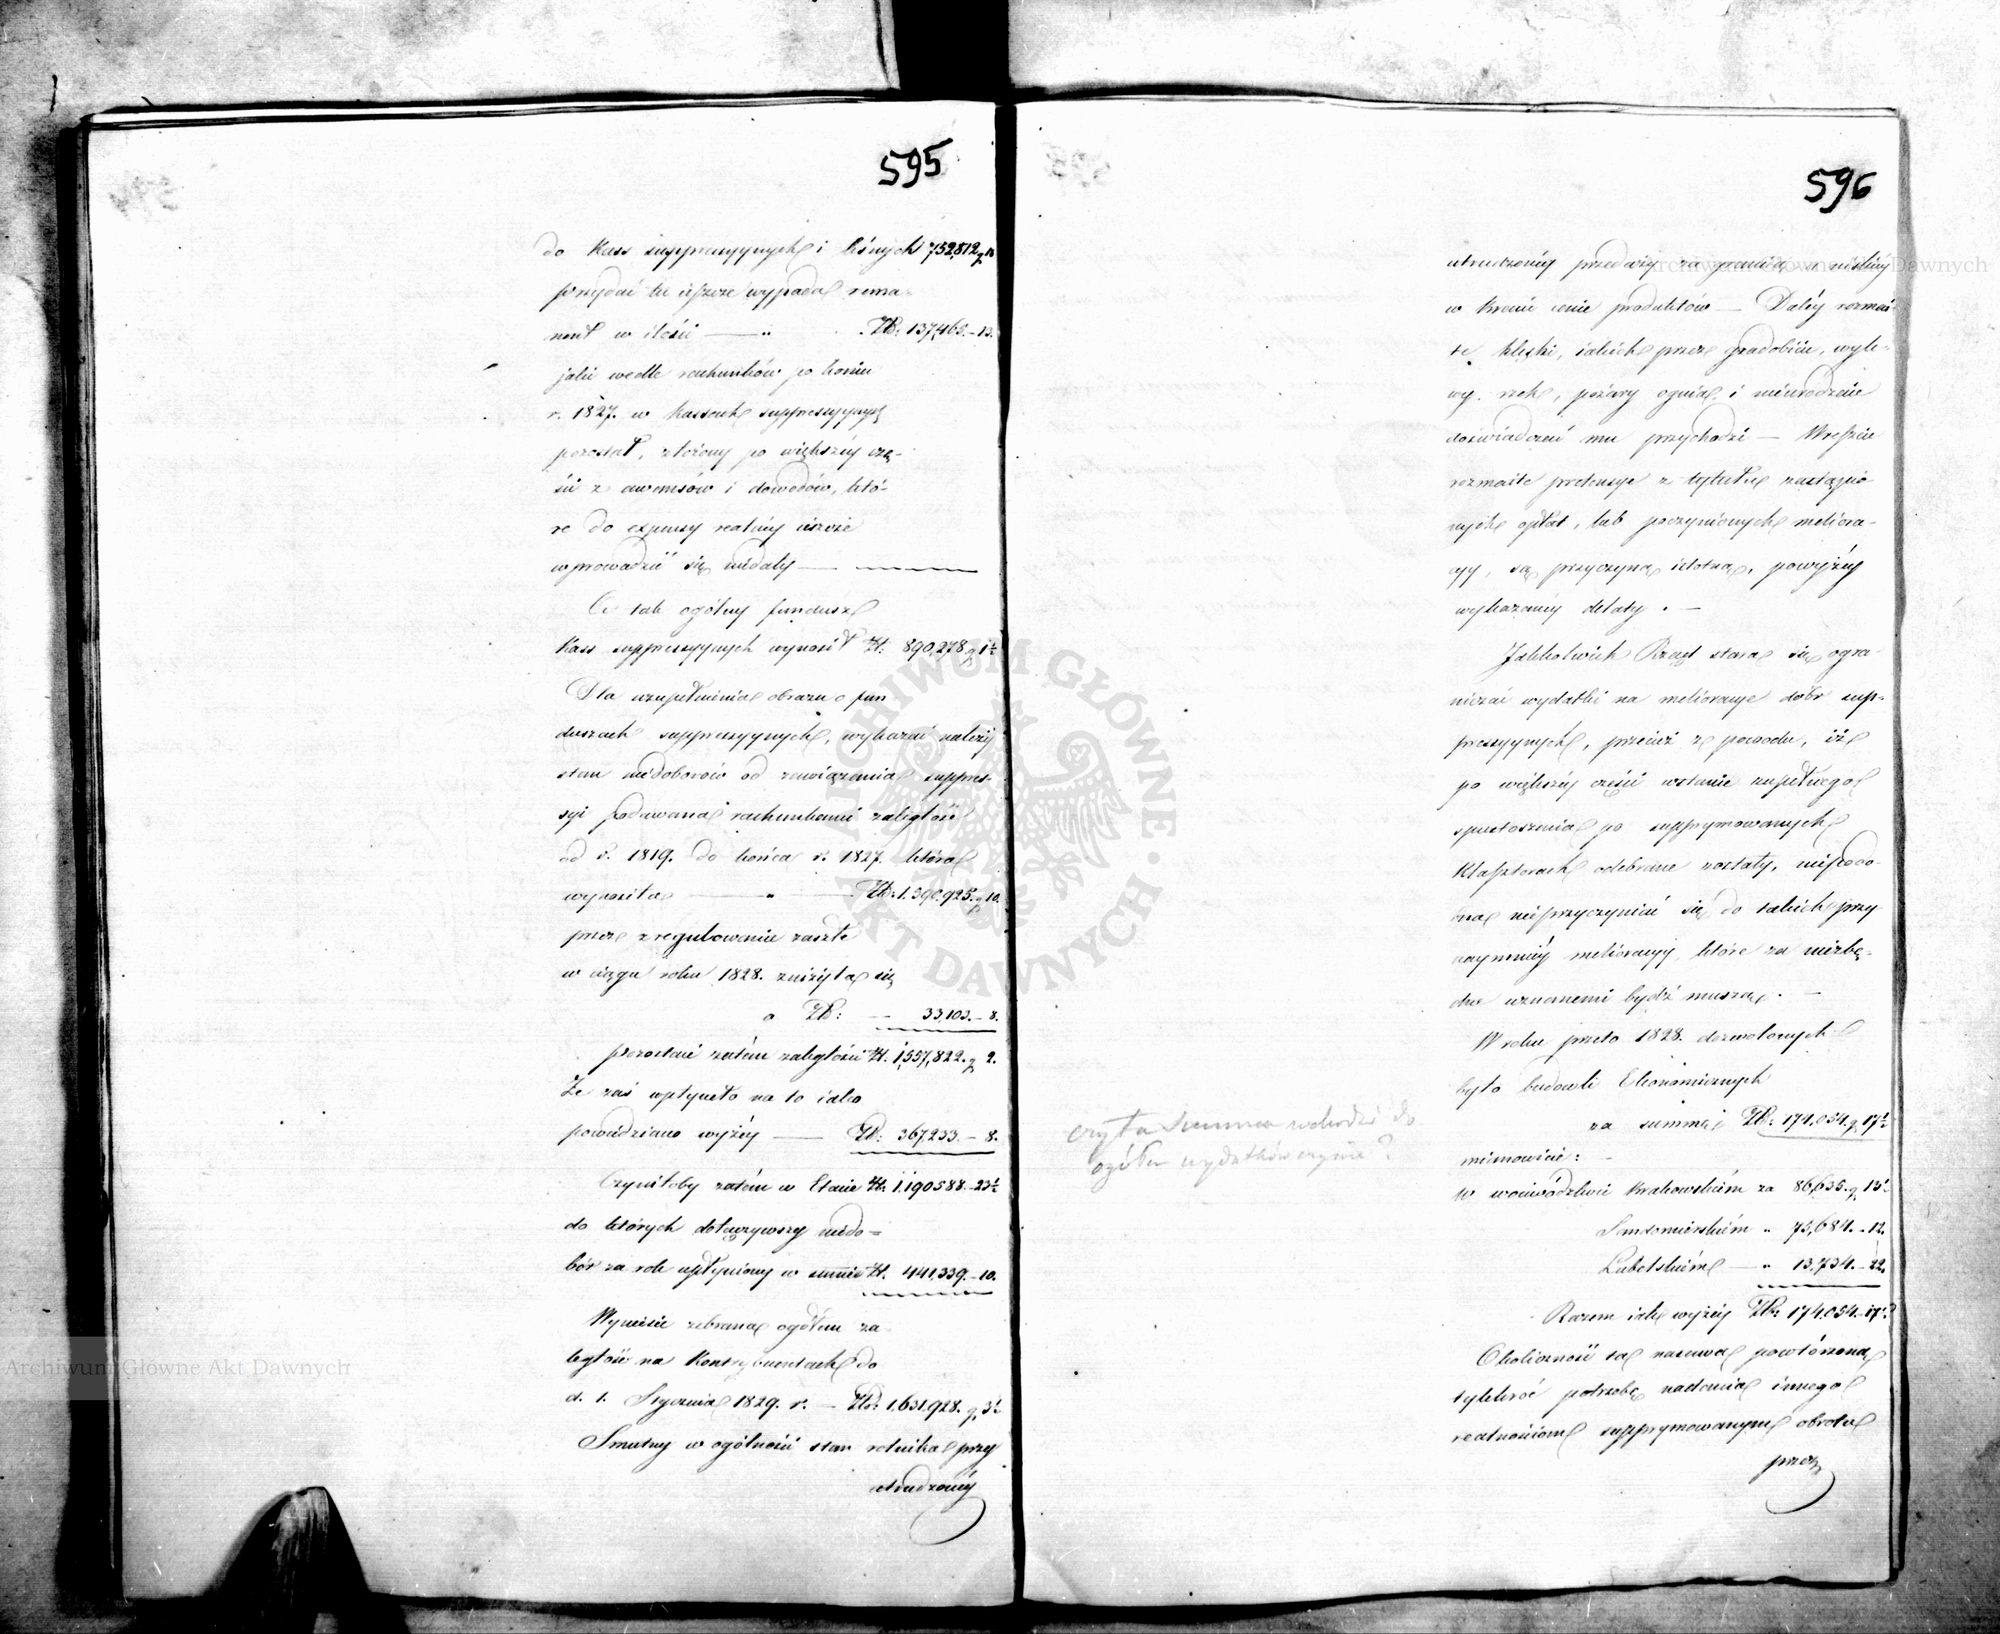 595
do Kass suppressyynych i leśnych 752,812 g
przydać tu ieszcze wypada rema-
nent w ilości — „ Zł: 137,465.-13.
jaki wedle rachunków po końcu
r. 1827. w Kassach suppressyynych
pozostał, złożony po większéy czę-
ści z awansów i dowodów, któ-
re do expensy realnéy ieszcze
wprowadzić się niedały —
Co tak ogólny fundusz
Kass suppressyynych wynosił Zł. 890,278 g 1½
Dla uzupełnienia obrazu o fun
duszach suppressyynych, wykazać należy
stan niedoborów od zawiązania suppres-
syi podawana rachunkami zaległość
od r. 1819. do końca r. 1827. która
wynosiła — „ — Zł: 1.590.925. g 10.
przez zregulowanie zaszłe
w ciągu roku 1828. zniżyła się
o Zł: — 33,103.-8.
pozostaie zatém zaległości Zł. 1,557,822. g 2.
Że zaś wpłynęło na to iako
powiedziano wyżéy — Zł: 367,233.-8.
Czyniłoby zatém w Stanie Zł. 1,190,588.-23½
do których dołączywszy niedo-
bór za rok upłyniony w summie Zł. 441,339.-10.
Wyniesie zebrana ogółem za-
ległość na Kontrybuentach do
d. 1. Stycznia 1829. r. — Zł: 1,631,928. g 3½
Smutny w ogólności stan rolnika przy
utrudzonéy
596
utrudzonéy przedaży za granicę a niskiéy
w kraiu cenie produktów — Daléy rozmai-
te klęski, iakich przez gradobicie, wyle-
wy rzek, pożary ognia, i nieurodzaie
doświadczać mu przychodzi — Wreszcie
rozmaite pretensye z tytułu zastąpio
nych opłat, lub poczynionych meliora-
cyy, są przyczyną istotną, powyżéy
wykazanéy detaty. —
Jakkolwiek Rząd stara się ogra-
niczać wydatki na melioracye dóbr sup-
pressyynych, przecież z powodu, iż
po większéy części w stanie zupełnego
spustoszenia po supprymowanych
Klasztorach odebrane zostały, niepodo-
bna nieprzyczynić się do takich przy
naymniéy melioracyy, które za niezbę-
dne uznanemi bydź muszą. —
W roku przeto 1828. dozwolonych
było budowli Ekonomicznych
za summę Zł: 174,054. g 17½
mianowicie: -
w woiewództwie Krakowskiém za 86,635. g 13½
Sandomierskiém „ 73,684.-12.
Lubelskiém — „ 13,734.-22.
Razem iak wyżéy Zł: 174,054.-17½
Okoliczność ta nasuwa powtórzoną
tylekroć potrzebę nadania innego
realnościom supprymowanym obrotu
przez
czy ta Summa wchodzi do
ogółu wydatków czynie?
ARCHIWUM GŁÓWNE AKT DAWNYCH
Archiwum Główne Akt Dawnych
Archiwum Główne Akt Dawnych